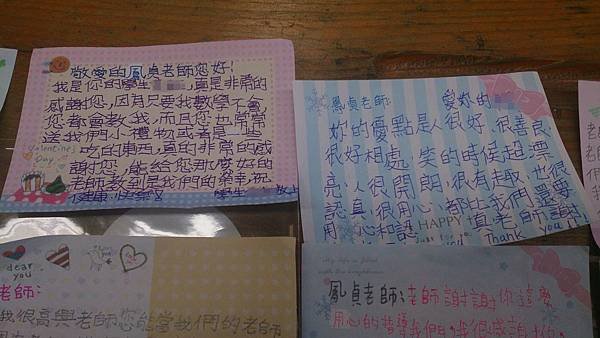 敬愛的鳳貞老師您好!
我是你的學生 真是非常的
感謝您,因為只要我數學不會,
您都會教我,而且您也常常
送我們小禮物或者是一些
吃的東西,真的非常的感
謝您,能給您那麼好的
老師教到是我們的榮幸,祝
健康,快樂!
學生 敬上
Valentine's
Day
鳳貞老師: 愛妳的
妳的優點是人很好、很善良、
很好相處、笑的時候超漂
亮、人很開朗、很有趣、也很
認真、很用心、都比我們還要
用心和認真老師謝謝!!
HAPPY
Thank you
dear
you
老師:
我很高興老師您能當我們的老師
鳳貞老師:老師謝謝你這麼
用心的指導我們,我很感謝